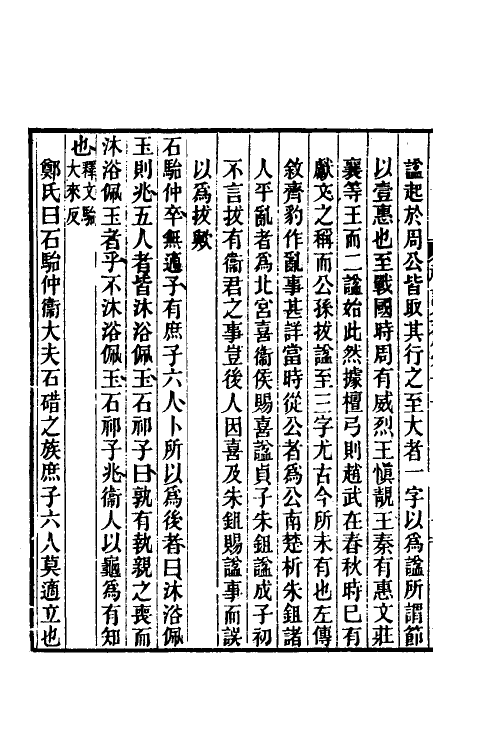 諡起於周公皆取其行之至大者一字以為諡所謂節
以壹惠也至戰國時周有威烈王慎靚王秦有惠文莊
襄等王而二諡始此然據檀弓則趙武在春秋時已有
獻文之稱而公孫拔諡至三字尤古今所未有也左傳
敘齊豹作亂事甚詳當時從公者為公南楚析朱鉏諸
人平亂者為北宮喜衞侯賜喜諡貞子朱鉏諡成子初
不言拔有衞君之事豈後人因喜及朱鉏賜諡事而誤
以為拔歟
石駘仲卒無適子有庶子六人卜所以為後者曰沐浴佩
玉則兆五人者皆沐浴佩玉石祁子曰孰有執親之喪而
沐浴佩玉者乎不沐浴佩玉石祁子兆衞人以龜為有知
也釋文駘大來反
鄭氏曰石駘仲衞大夫石碏之族庶子六人莫適立也